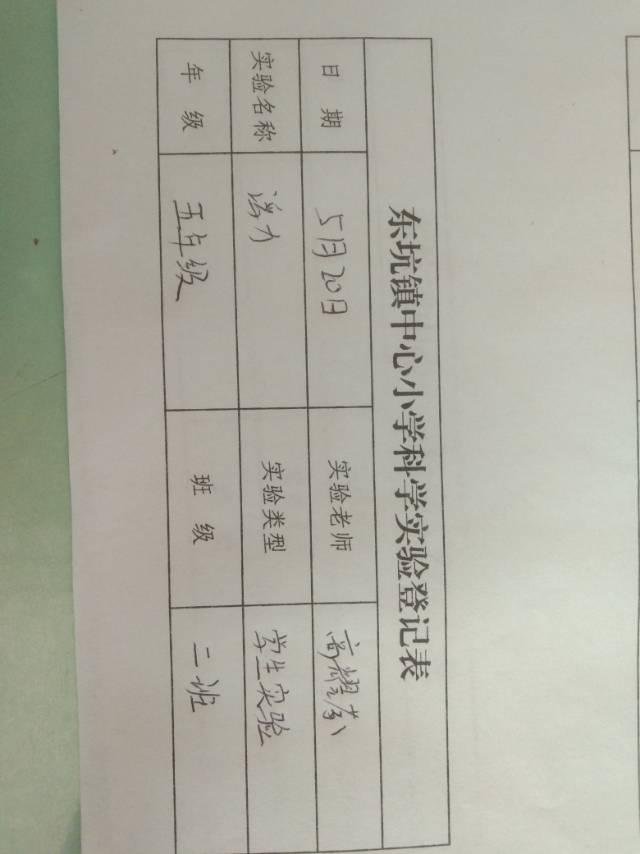 东坑镇中心小学科学实验登记表
日 期 5月20日 实验老师 高耀
实验名称 浮力 实验类型 学生实验
年 级 五年级 班 级 二班